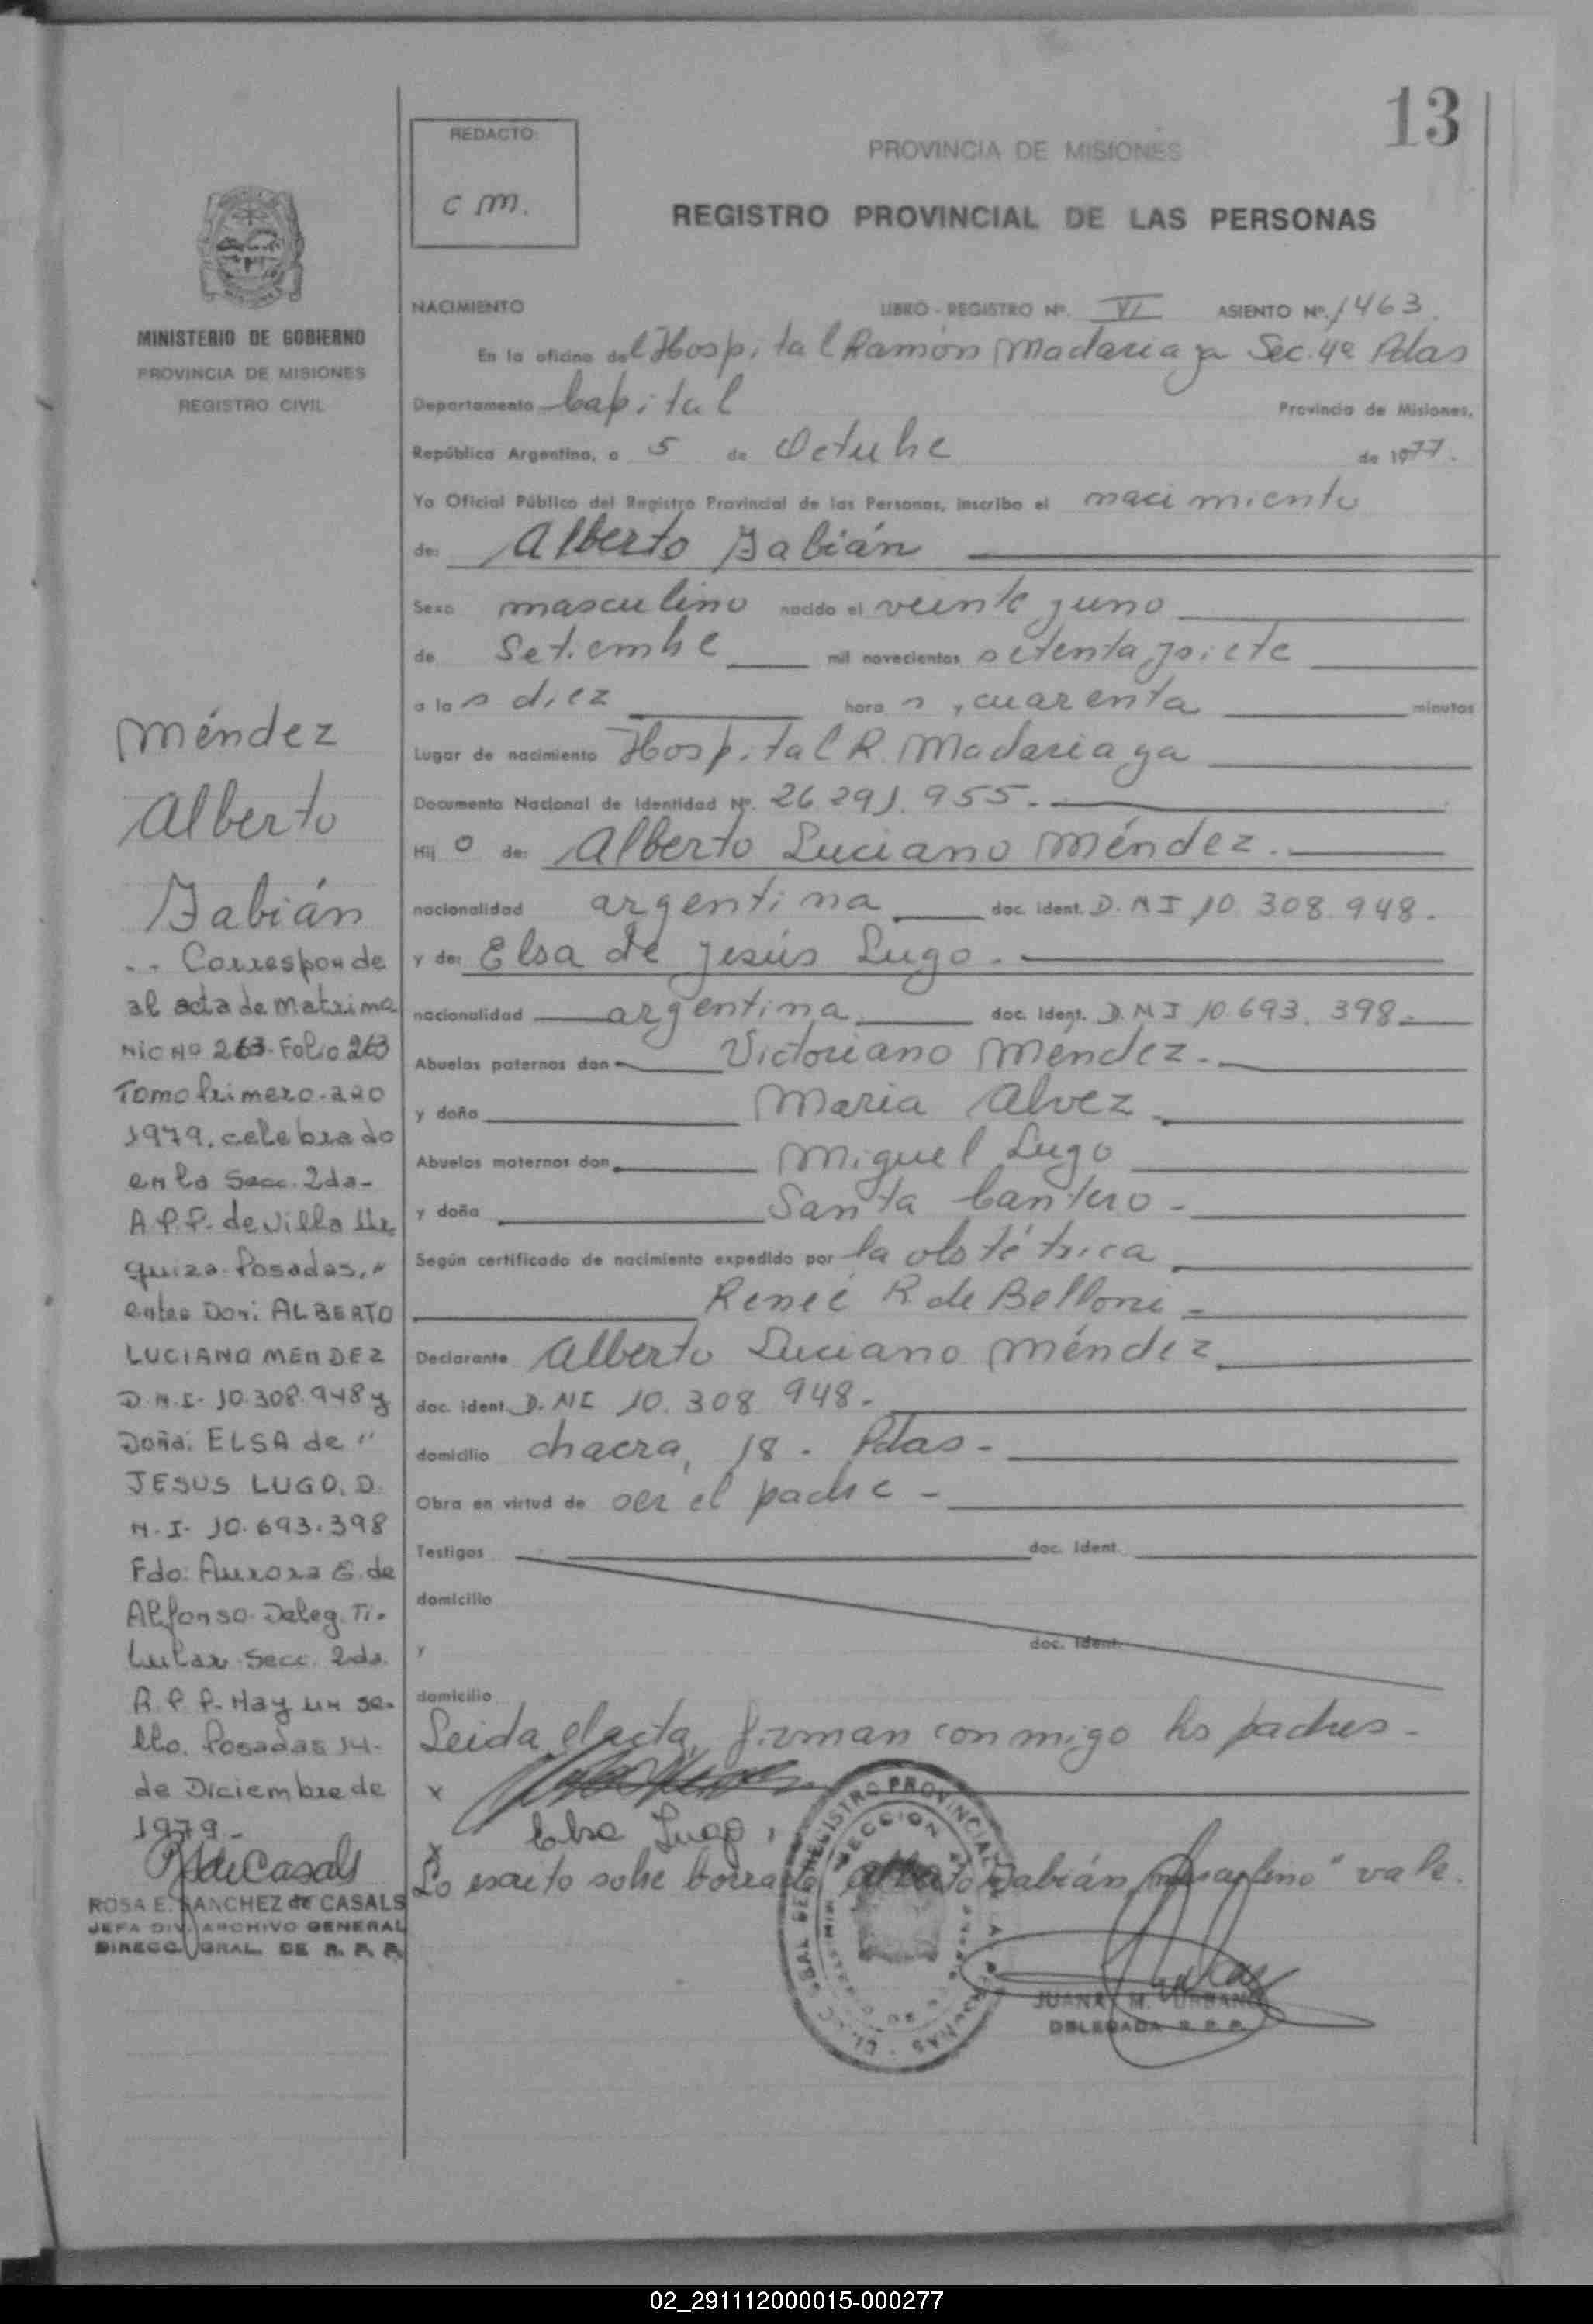 13
REDACTO:
C M.
PROVINCIA DE MISIONES
REGISTRO PROVINCIAL DE LAS PERSONAS
MINISTERIO DE GOBIERNO
PROVINCIA DE MISIONES
REGISTRO CIVIL
NACIMIENTO LIBRO - REGISTRO Nº. VI ASIENTO Nº. 1463.
En la oficina del Hospital Ramón Madariaga Sec. 4ª Pdas
Departamento Capital Provincia de Misiones,
República Argentina, a 5 de Octubre de 1977.
Yo Oficial Público del Registro Provincial de las Personas, inscribo el nacimiento
de: Alberto Fabián
Sexo masculino nacido el veinte y uno
de Setiembre mil novecientos setenta y siete
a las diez horas, cuarenta minutos
Lugar de nacimiento Hospital R. Madariaga
Documento Nacional de Identidad Nº. 26 291. 955.-
Hijo de: Alberto Luciano Méndez.
nacionalidad argentina doc. ident. D. N I 10. 308. 948.
y de: Elsa de Jesús Lugo.
nacionalidad argentina doc. ident. D. N I 10.693. 398.
Abuelos paternos don Victoriano Mendez.
y doña Maria Alvez
Abuelos maternos don Miguel Lugo
y doña Santa Cantero -
Según certificado de nacimiento expedido por la obstétrica
Reneé R de Belloni -
Declarante Alberto Luciano Méndez
doc. ident. D. NI 10. 308 948.
domicilio chacra, 18 . Pdas -
Obra en virtud de ser el padre -
Testigos doc. ident.
domicilio
y doc. ident.
domicilio
Leida el acta, firman conmigo los padres -
x
Elsa Lugo,
x
Lo escrito sobre borrado Alberto Fabián, masculino" vale.
JUANA M. URBANO
DELEGADA R. P. P.
Méndez
Alberto
Fabián
.. Corresponde
al acta de Matrimo
nio Nº 263- Folio 263
Tomo Primero. año
1979. celebrado
en la Secc. 2da-
R.P.P. de Villa Ur
quiza- Posadas,"
entre Don: ALBERTO
LUCIANO MENDEZ
D.N.I- 10.308.948 y
Doña: ELSA de "
JESUS LUGO. D.
N. I- 10.693.398
Fdo: Aurora E. de
Alfonso- Deleg. Ti-
tular Secc. 2da.
R.P.P- Hay un se-
llo. Posadas 14-
de Diciembre de
1979-
ROSA E. SANCHEZ de CASALS
JEFA DIV. ARCHIVO GENERAL
DIRECC. GRAL. DE R. P. P.
02_291112000015-000277